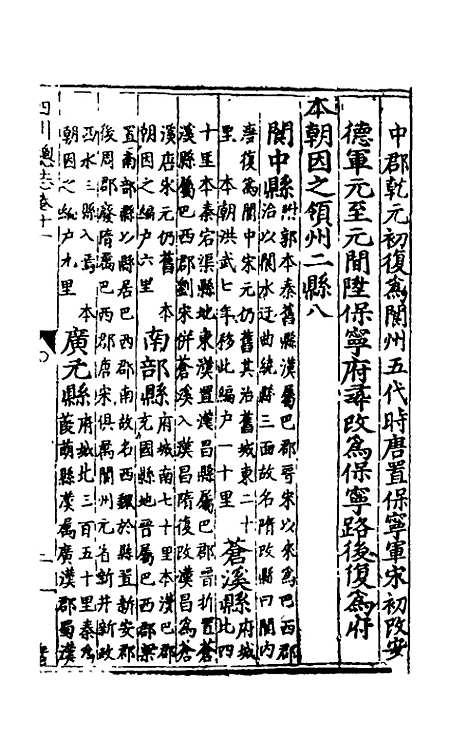 中郡乾元初復為閬州五代時唐置保寧軍宋初改安
德軍元至元間陞保寧府尋改為保寧路後復為府
本朝因之領州二縣八
閬中縣附郭本秦舊縣漢屬巴郡晉宋以來為巴西郡
治以閬水迂曲繞縣三面故名隋改縣曰閬內
唐復為閬中宋元仍舊其治舊城東二十
里本朝洪武七年移此編户一十里
蒼溪縣府城
北四
十里本秦宕渠縣地東漢置漢昌縣屬巴郡晉析置蒼
溪縣屬巴西郡劉宋併蒼溪入漢昌隋復改漢昌為蒼
溪唐宋元仍舊本
朝因之編户六里
南部縣府城南七十里本漢巴郡
充國縣地晉屬巴西郡梁
置南部郡以縣居巴西郡南故名西魏於縣置新安郡
後周郡廢隋屬巴西郡唐宋俱屬閬州元省新井新政
西水三縣入焉本
朝因之編户九里
廣元縣府城北三百五十里秦為
葭萌縣漢屬廣漢郡蜀漢
四川總志卷十一